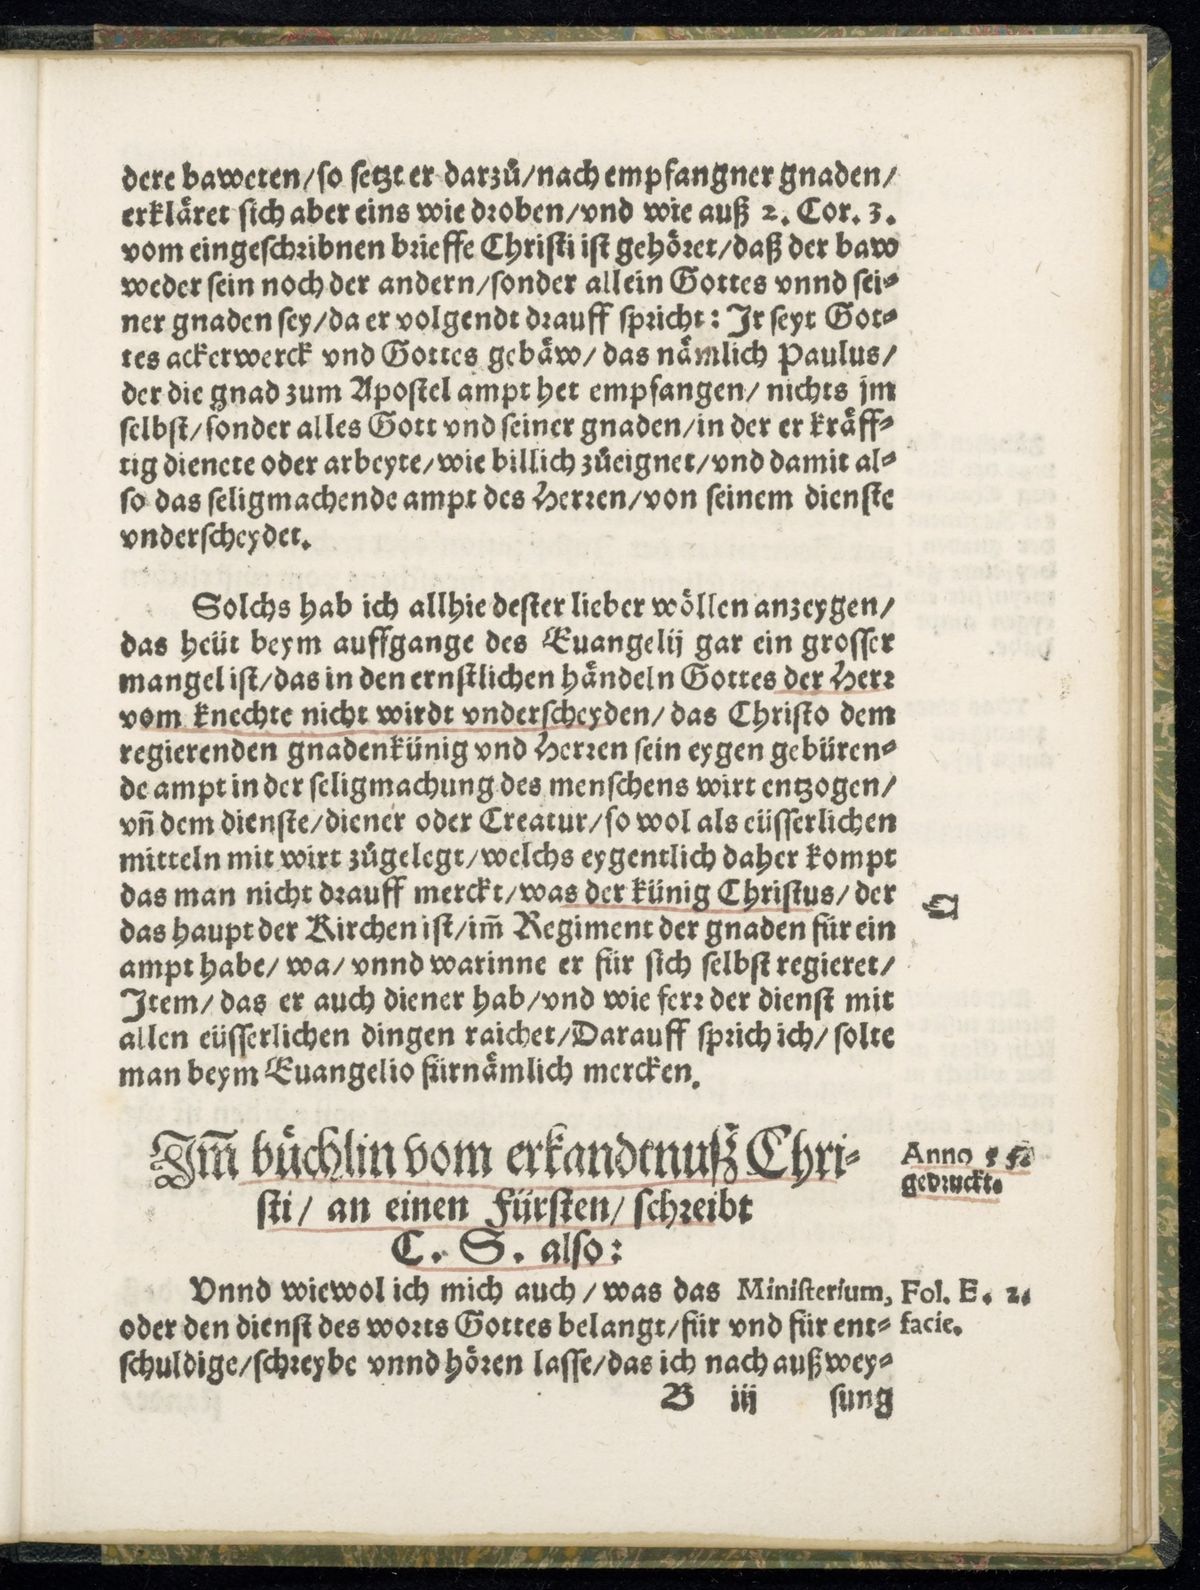 dere baweten/so setzt er darzů/nach empfangner gnaden/
erkläret sich aber eins wie droben/vnd wie auß 2. Cor. 3.
vom eingeschribnen brieffe Christi ist gehöret/daß der baw
weder sein noch der andern/sonder allein Gottes vnnd sei-
ner gnaden sey/da er volgendt drauff spricht: Ir seyt Got-
tes ackerwerck vnd Gottes gebäw/ das nämlich Paulus/
der die gnad zum Apostel ampt het empfangen/ nichts jm
selbst/sonder alles Gott vnd seiner gnaden/in der er kräff-
tig dienete oder arbeyte/wie billich zůeignet/vnd damit al-
so das seligmachende ampt des Herren/von seinem dienste
vnderscheydet.
Solchs hab ich allhie dester lieber wöllen anzeygen/
das heüt beym auffgange des Euangelij gar ein grosser
mangel ist/das in den ernstlichen händeln Gottes der Herr
vom knechte nicht wirdt vnderscheyden/das Christo dem
regierenden gnadenkünig vnd Herren sein eygen gebüren-
de ampt in der seligmachung des menschens wirt entzogen/
vñ dem dienste/diener oder Creatur/so wol als eüsserlichen
mitteln mit wirt zůgelegt/welchs eygentlich daher kompt
das man nicht drauff merckt/was der künig Christus/der
das haupt der Kirchen ist/im̃ Regiment der gnaden für ein
ampt habe/ wa/ vnnd warinne er für sich selbst regieret/
Item/ das er auch diener hab/vnd wie ferr der dienst mit
allen eüsserlichen dingen raichet/Darauff sprich ich/ solte
man beym Euangelio fürnämlich mercken.
Im̃ bůchlin vom erkandtnuß Chri-
sti/ an einen Fürsten/ schreibt
C. S. also:
Anno
gedruckt.
Vnnd wiewol ich mich auch/was das Ministerium,
oder den dienst des worts Gottes belangt/für vnd für ent-
schuldige/schreybe vnnd hören lasse/das ich nach außwey-
Fol. E. 2.
facie.
B iij sung